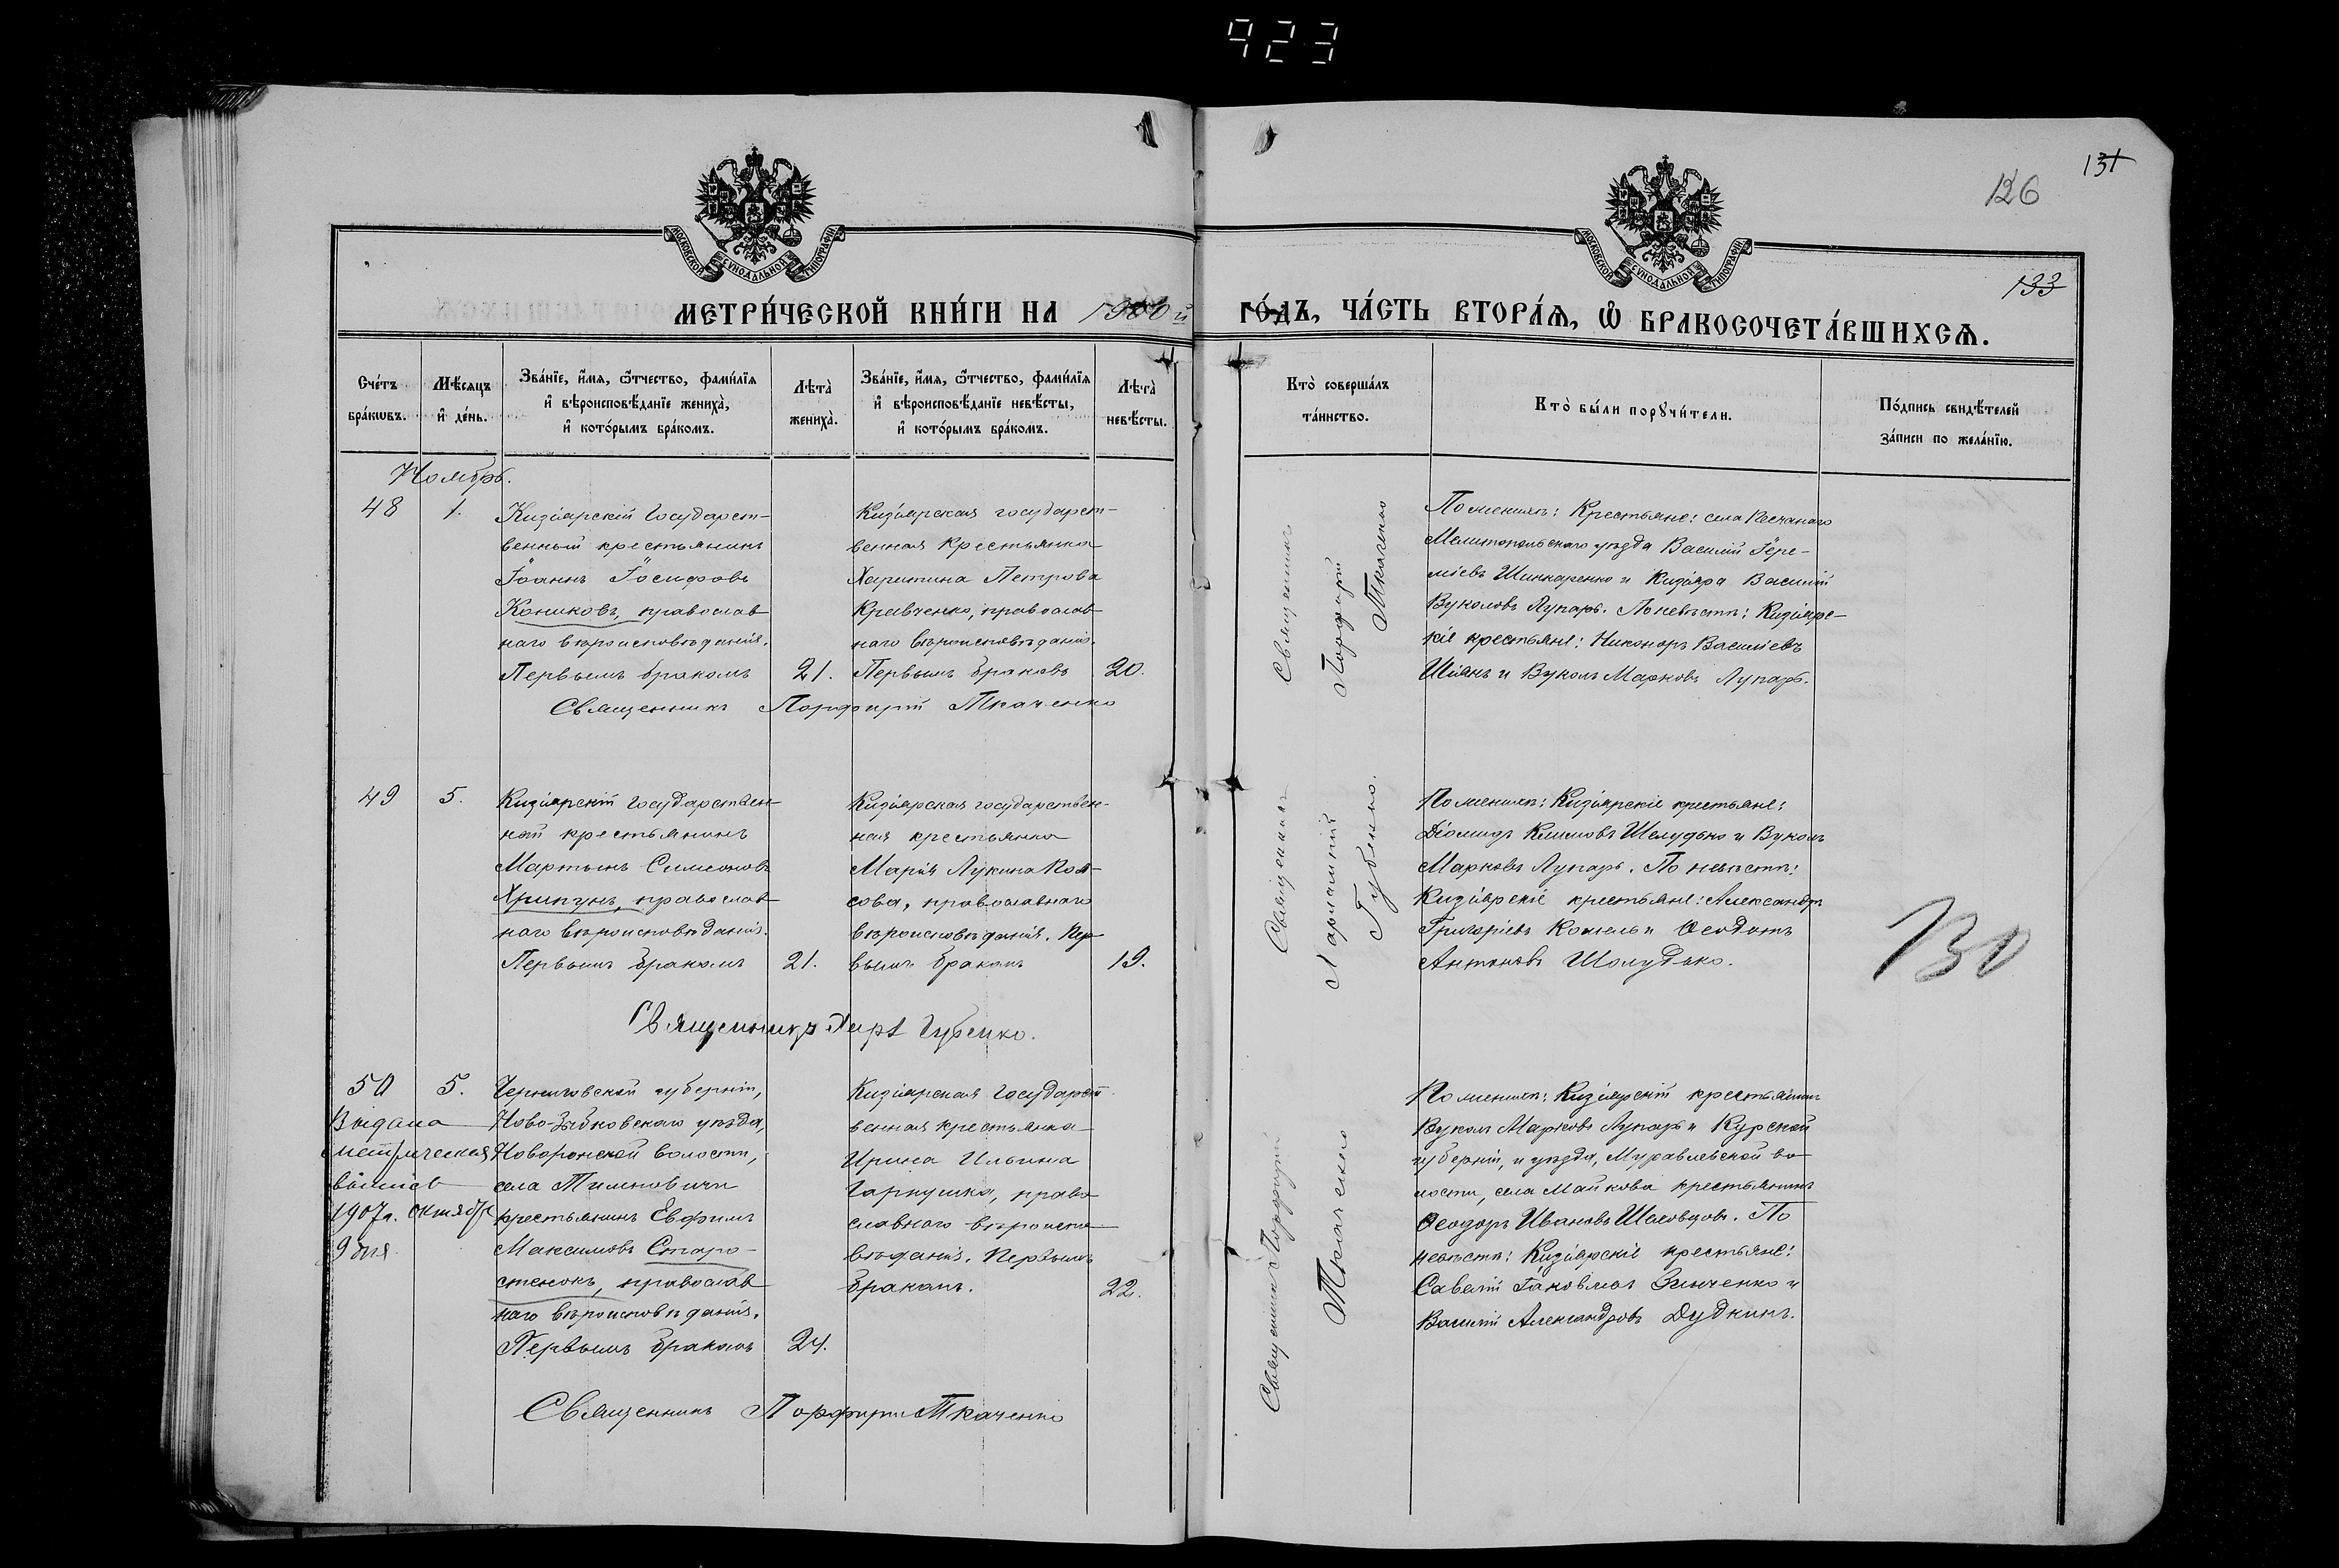 923
126
131
133
МОСКОВСКОЙ СѴНОДАЛЬНОЙ ТИПОГРАФІИ
МОСКОВСКОЙ СѴНОДАЛЬНОЙ ТИПОГРАФІИ
МЕТРИ́ЧЕСКОЙ КНИ́ГИ НА 1900й
ГО́ДЪ, ЧА́СТЬ ВТОРА́Ѧ, Ѽ БРАКОСОЧЕТА́ВШИХСѦ.
Сче́тъ бра́кωвъ.
Мѣ́сяцъ и҆ де́нь.
Зва́нїе, и҆́мя, ѻ҆́тчество, фами́лїя
и҆ вѣроисповѣ́данїе жениха̀,
и҆ кото́рымъ бра́комъ.
Лѣта̀ жениха̀.
Зва́нїе, и҆́мя, ѻ҆́тчество, фами́лїя
и҆ вѣроисповѣ́данїе невѣ́сты,
и҆ кото́рымъ бра́комъ.
Лѣта̀ невѣ́сты.
Кто̀ соверша́лъ
та́инство.
Кто̀ бы́ли порꙋчи́тели.
По́дпись свидѣ́телей
за́писи по жела́нїю.
Ноябрь.
48
1.
Кизіярскій Государст-
венный крестьянинъ
Іоаннъ Іосифовъ
Кониковъ, православ
наго вѣроисповѣданія.
Первымъ бракомъ
21.
Кизіярская государст-
венная крестьянка
Харитина Петрова
Кравченко, православ
наго вѣроисповѣданія.
Первымъ бракомъ
20.
Священникъ Порфирій Ткаченко
Священникъ
Порфирій
Ткаченко
По женихѣ: Крестьяне: села Песчанаго
Мелитопольскаго уѣзда Василій Іере-
міевъ Шинкаренко и Кизіяра Василій
Вуколовъ Лупарь. По невѣстѣ: Кизіярс-
кіе крестьяне: Никоноръ Василіевъ
Шіянъ и Вуколъ Марковъ Лупарь.
49
5.
Кизіярскій Государствен-
ный крестьянинъ
Мартынъ Симеоновъ
Хрипунъ, православ
наго вѣроисповѣданія.
Первымъ бракомъ
21.
Кизіярская государствен-
ная крестьянка
Марія Лукина
сова, православнаго
вѣроисповѣданія. Пер
вымъ бракомъ
19.
Священникъ Губенко.
Священникъ
Губенко.
По женихѣ: Кизіярскіе крестьяне:
Діомидъ Климовъ Шелудько и Вуколъ
Марковъ Лупарь. По невѣстѣ:
Кизіярскіе крестьяне: Александръ
Григоріевъ и Ѳеодотъ
Антоновъ Шолудько.
130
50
5.
Выдана
метрическая
выпись
1907 г. октября
9 дня.
Черниговской губерніи,
Ново-Зыбковскаго уѣзда,
Новоропской волости,
села Тимоновичи
крестьянинъ Евфимъ
Максимовъ Старо-
стенокъ, православ
наго вѣроисповѣданія.
Первымъ бракомъ
24.
Кизіярская Государст
венная крестьянка
Ирина Ильина
Гаркушка, право
славнаго вѣроиспо
вѣданія. Первымъ
бракомъ.
22.
Священникъ Порфирій Ткаченко
Священникъ Порфирій
Ткаченко
По женихѣ: Кизіярскій крестьянинъ
Вуколъ Марковъ Лупарь и Курской
губерніи, и уѣзда, Муравлевской во
лости, села Майкова крестьянинъ
Ѳеодоръ Ивановъ Шеховцовъ. По
невѣстѣ: Кизіярскіе крестьяне:
Саватій Іаковлевъ Зинченко и
Василій Александровъ Дудкинъ.